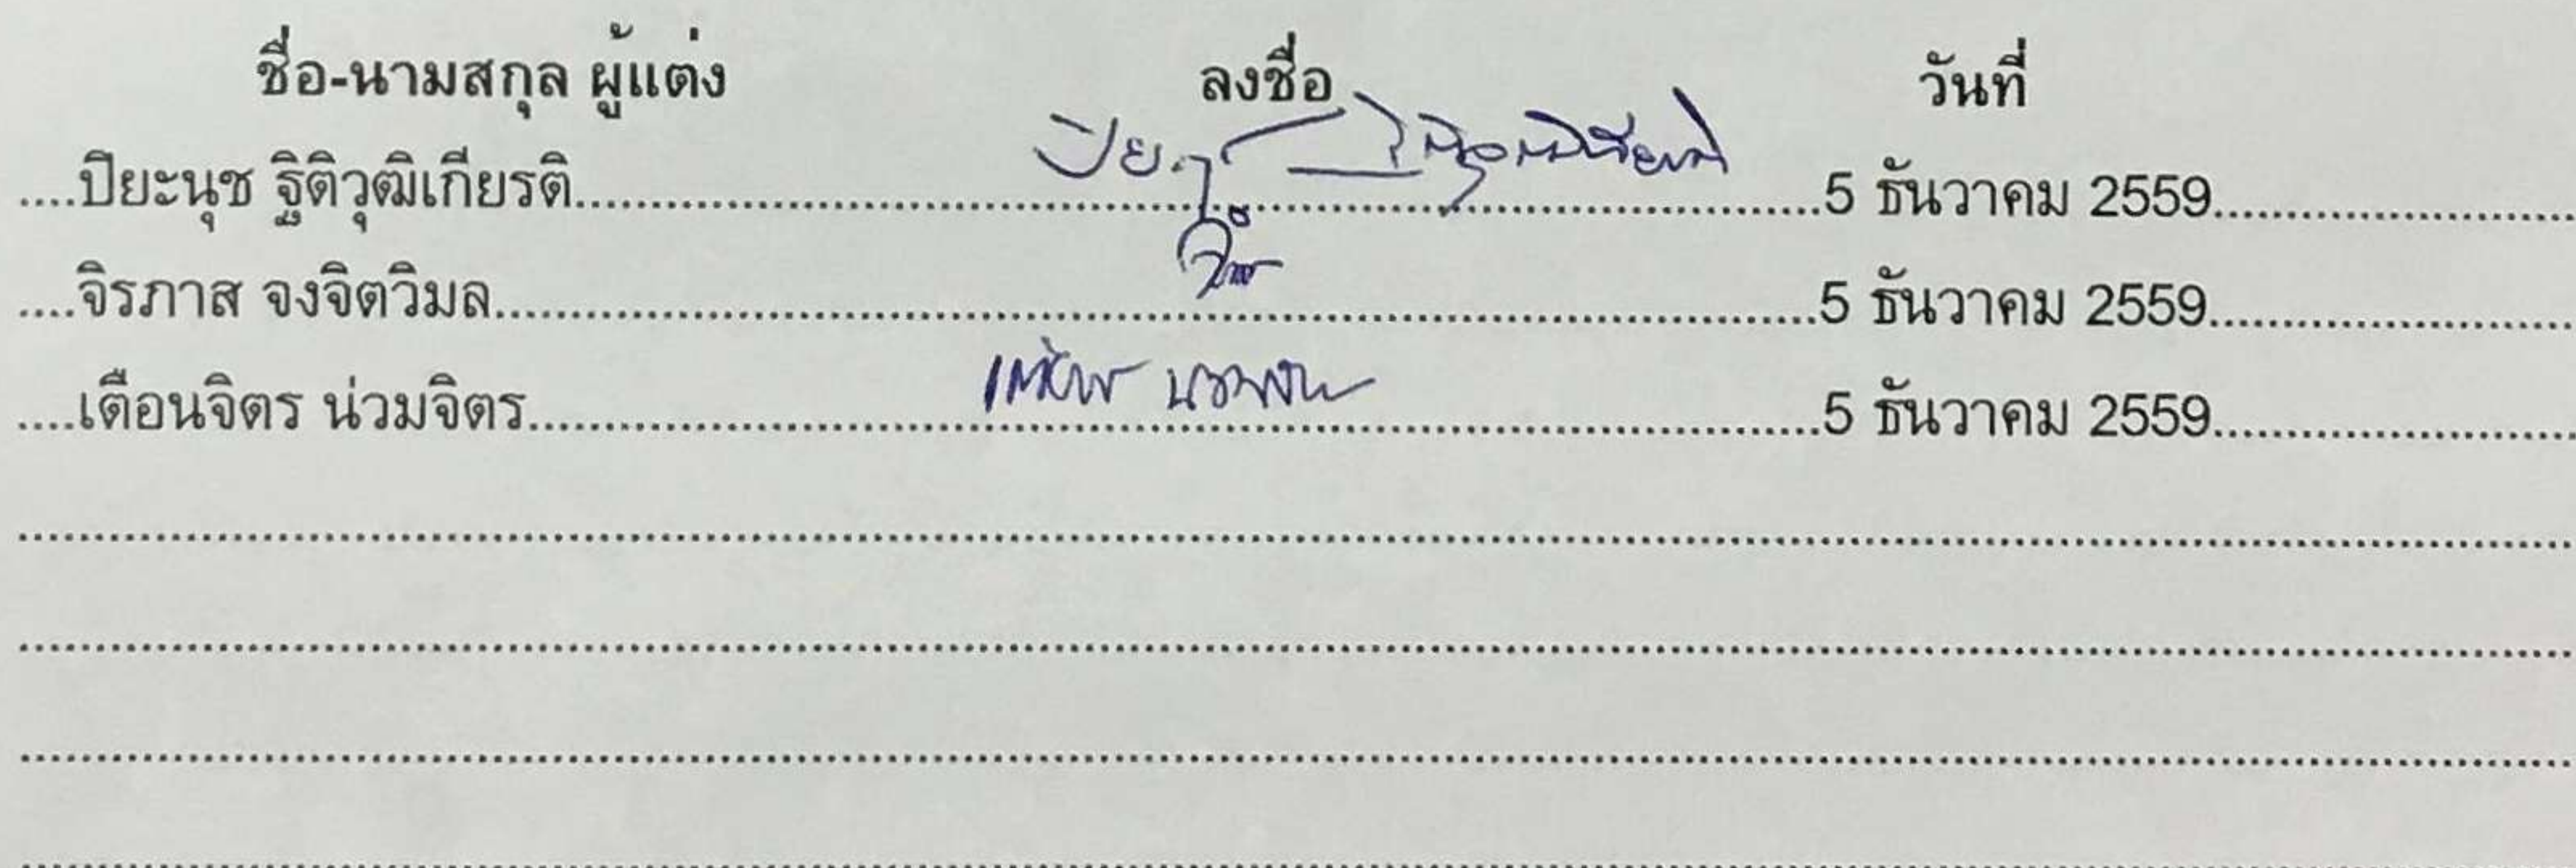 ชื่อ-นามสกุล ผู้แต่ง ลงชื่อ วันที่
....ปิยะนุช ฐิติวุฒิเกียรติ..........5 ธันวาคม 2559..........
....จิรภาส จงจิตวิมล..........5 ธันวาคม 2559..........
....เตือนจิตร น่วมจิตร..........5 ธันวาคม 2559..........